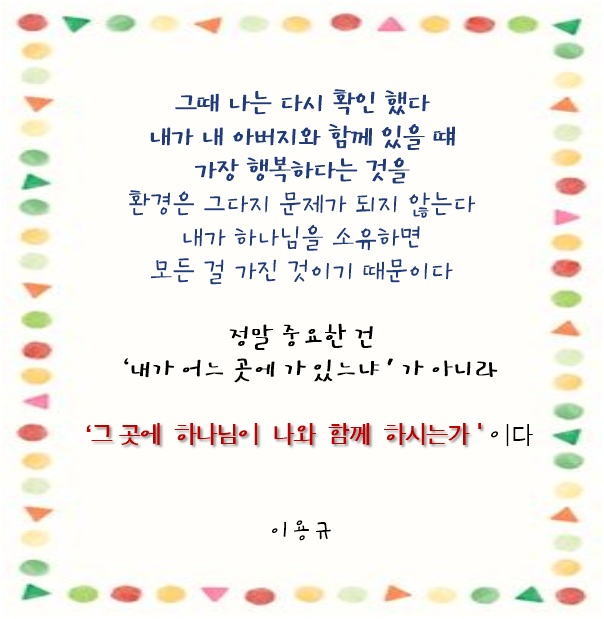 그때 나는 다시 확인 했다
내가 내 아버지와 함께 있을 떄
가장 행복하다는 것을
환경은 그다지 문제가 되지 않는다
내가 하나님을 소유하면
모든 걸 가진 것이기 때문이다
정말 중요한 건
‘내가 어느 곳에 가 있느냐 ’ 가 아니라
‘그 곳에 하나님이 나와 함께 하시는가 ' 이다
이용규